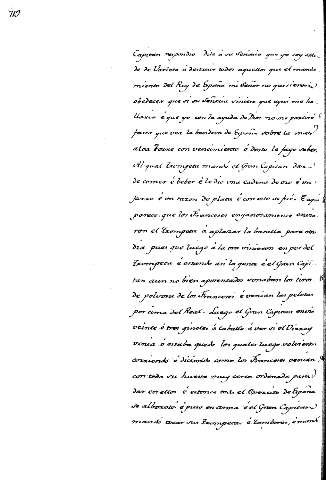 Capitan respondio dile à su Señoria que yo soy
de de Varleta à destruir todos aquellos que el manda
miento del Rey de España mi Señor no quisieren
obedecer que si su Señoria viniere que aqui me ha
llara é que yo con la ayuda de Dios
facer que vea la bandera de España sobre la mas
alta Torre con vencimiento é desto le fago saber.
Al qual trompeta mandó el Gran Capitan dar
de comer é beber é le dio una cadena de oro é un
jarro é un tazon de plata é con esto se fué. E
porece que los Franceses engañosamente envia
ron el trompeta à aplazar la batalla para
dia pues que luego à la ora vinieron en pos del
trompeta é estando asi la gente é el Gran Capi
tan aun no bien aposentado sonaban los tiros
de polvora de los Franceses é venian las pelotas
por cima del Real. Luego el Gran Capitan envió
veinte ó tres ginetes à caballo à ver si el Visorey
venia ó estaba quedo los quales luego volvieron
corriendo é diciendo como los Franceses venian
con toda su hueste muy cerca ordenada para
dar en ellos é estonce todo el Exercito de España
se alborotó é puso en arma é el Gran Capitan
mando tocar sus Trompetas é Tambores, é